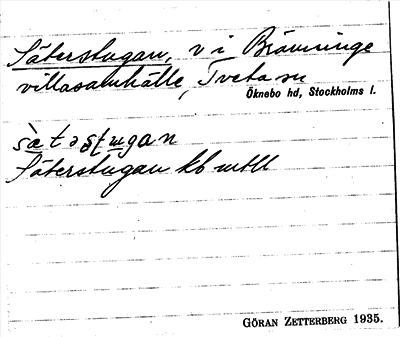 Säterstugan, v i Bränninge
villasamhälle, Tveta sn
Öknebo hd, Stockholms l.
sæ̀təʂʈɯgan
Säterstugan kb mtll
GÖRAN ZETTERBERG 1935.